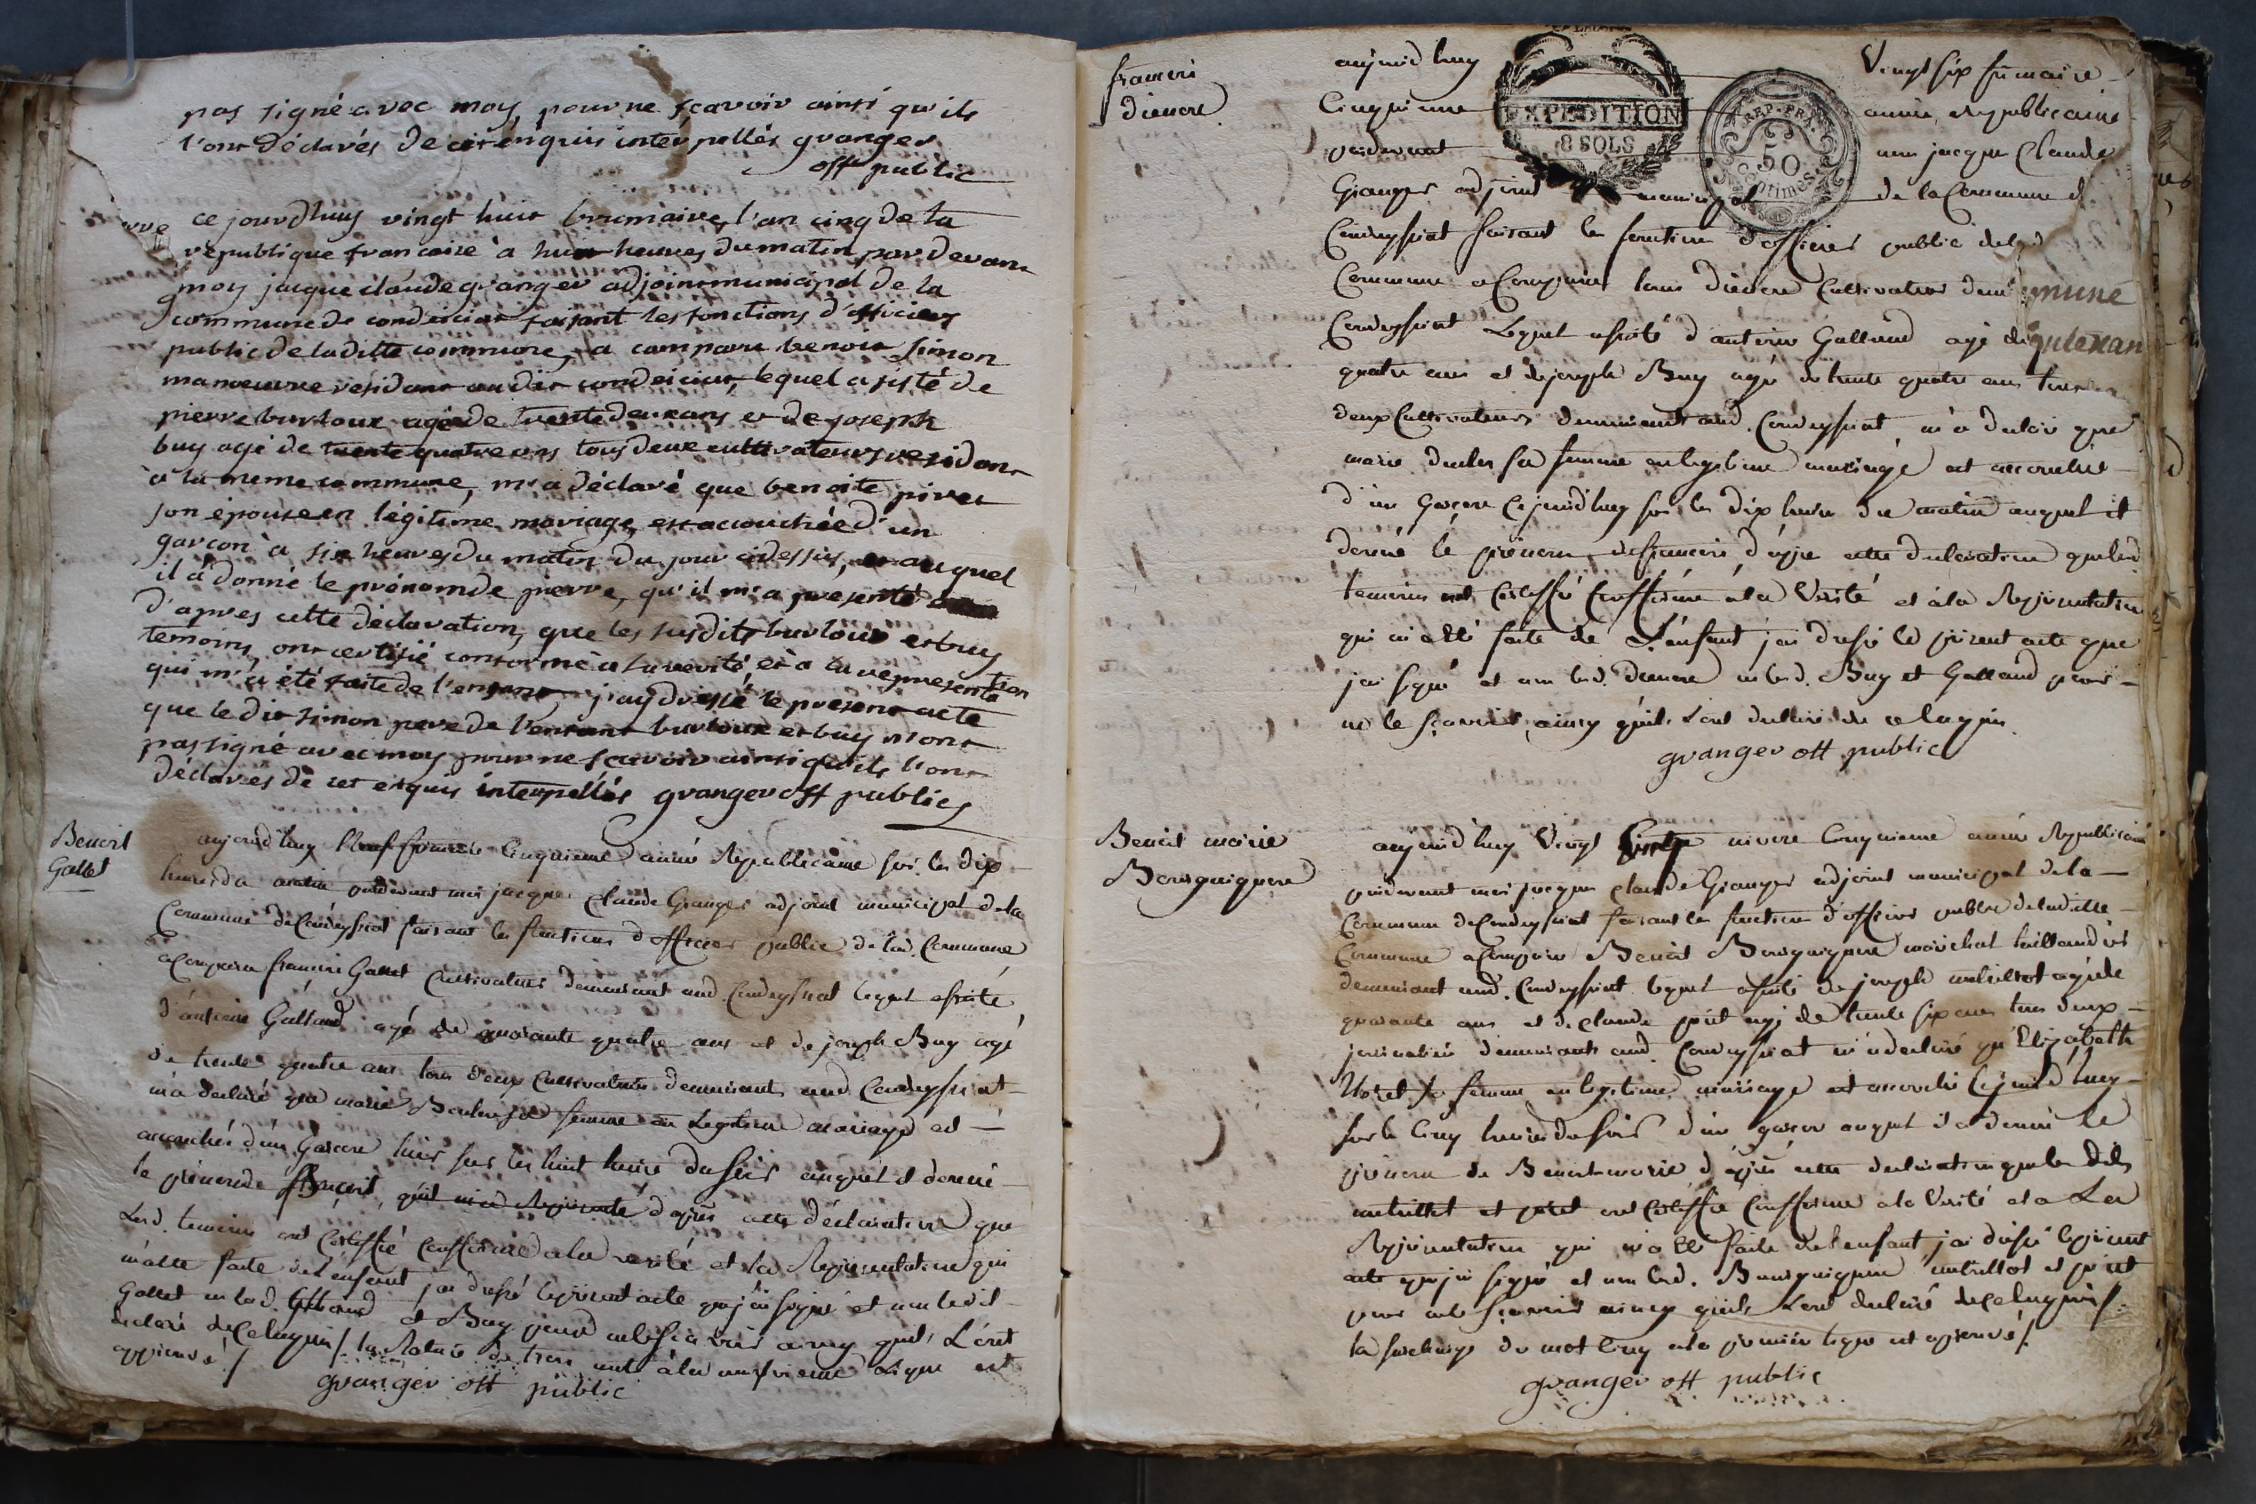 pas signé avec moy, pour ne sçavoir ainsi qu'ils
l'ont déclarés de cet enquis interpellés granger
off public
ce jourdhuy vingt huit brumaire, l'an cinq de la
république francaise à huit heures du matin, par devant
moy jacque claude granger adjoint municipal de la
commune de condeiciat faisant les fonctions d'officier
public de la ditte commune, a comparu benoit simon
manoeuvre résidant au dit condeiciat, lequel assisté de
pierre burtoux agé de trente deux ans et de joseph
buy agé de trente quatre ans tous deux cultivateurs résidant
à la meme commune, m'a déclaré que benoite pivet
son épouse en légitime mariage, est accouchée d'un
garcon à six heures du matin du jour cidessus, et auquel
il a donné le prénom de pierre, qu'il m'a presenté
d'apres cette déclaration, que les susdits burtoux et buy
temoins, ont certifié conforme à la verité, et à la représenta tion
qui m'a été faite de l'enfant, j'ay dressé le présent acte
que le dit simon pere de l'enfant burtoux et buy n'ont
pas signé avec moy pour ne scavoir ainsi qu'ils l'ont
déclarés de cet enquis interpellés granger off public
Benoit
Gallet
aujourd'huy Neuf frimaire Cinquieme année Republicaine sur les dix
heures du matin pardevant moi jacque Claude Granger adjoint municipal de la
Commune de Condeyssiat faisant les fonctions d'officier public de lad. Commune
a Comparu francois Gallet Cultivateur demeurant aud. Condeyssiat lequel assisté
d'antoine Galland agé de quarante quatre ans et de joseph Buy agé
de trente quatre ans tous deux Cultivateurs demeurants aud Condeyssiat
m'a declaré que marie femme en Legitime mariage est
accouchée d'un Garcon hier sur les huit heures du soir auquel il donné
le prénom de Benoit, d'après cette déclaration que
Lesd. temoins ont Certiffié Conforme a la verité et la Representation qui
m'a été faite de l'enfant j'ai dressé le present acte que j'ai signé et non ledit
Gallet ni led. Galland et Buy pour ne le scavoir ainsy qu'ils L'ont
declaré de ce Enquis /. la Rature de trois mots à la ligne est
approuvé /.
granger off public
francois
Diencre
aujourd'huy Vingt six frimaire
EXPEDITION
8 SOLS
REP. FRA.
50
centimes
Cinquieme année Republicaine
pardevant moi jacque Claude
Granger adjoint municipal de la Commune d
Condeyssiat faisant les fonctions d'officier public de lad
Commune a Comparu Cultivateur
Condeyssiat Lequel assisté d'antoine Galland agé de
quatre ans et de joseph Buy agé de trente quatre ans tous
deux Cultivateurs demeurants aud. Condeyssiat, m'a declaré que
marie sa femme en legitime mariage est accouchée
d'un Garcon cejourd'huy sur les dix heures du matin auquel il
donné le prénom de francois, d'après cette declaration que lesd
temoins ont Certiffié Confforme a la Verité et à la Representation
qui m'a été faite de L'enfant j'ai dressé le présent acte que
j'ai signé et non led. Diencre ni led. Buy et Galland pour
ne le sçavoir ainsy qu'ils L'ont declaré de ce Enquis
granger off public
Benoit marie
Bourguignon
aujourd'huy Vingt nivose Cinquieme année Republicaine
pardevant moi jacque Claude Granger adjoint municipal de la
Commune de Condeyssiat faisant les fonctions d'officier public de ladite
Commune a Comparu Benoit Bourguignon marechal taillandier
demeurant aud. Condeyssiat lequel assisté de joseph agé de
quarante ans et de Claude agé de trente six ans tous deux
journaliers demeurants aud. Condeyssiat m'a declaré qu'Elizabeth
sa femme en legitime mariage est accouchée cejourd'huy
sur les Cinq heures du soir d'un garcon auquel il a donné le
prénom de Benoit marie d'après cette declaration que les dits
ont Certiffié Confforme a la Verité et a La
Representation qui m'a été faite de l'enfant j'ai dressé le present
acte que j'ai signé et non led. Bourguignon
pour ne le sçavoir ainsy qu'ils L'ont declaré de ce Enquis /.
la surcharge du mot Cinq a la premiere ligne est approuvé /.
granger off public